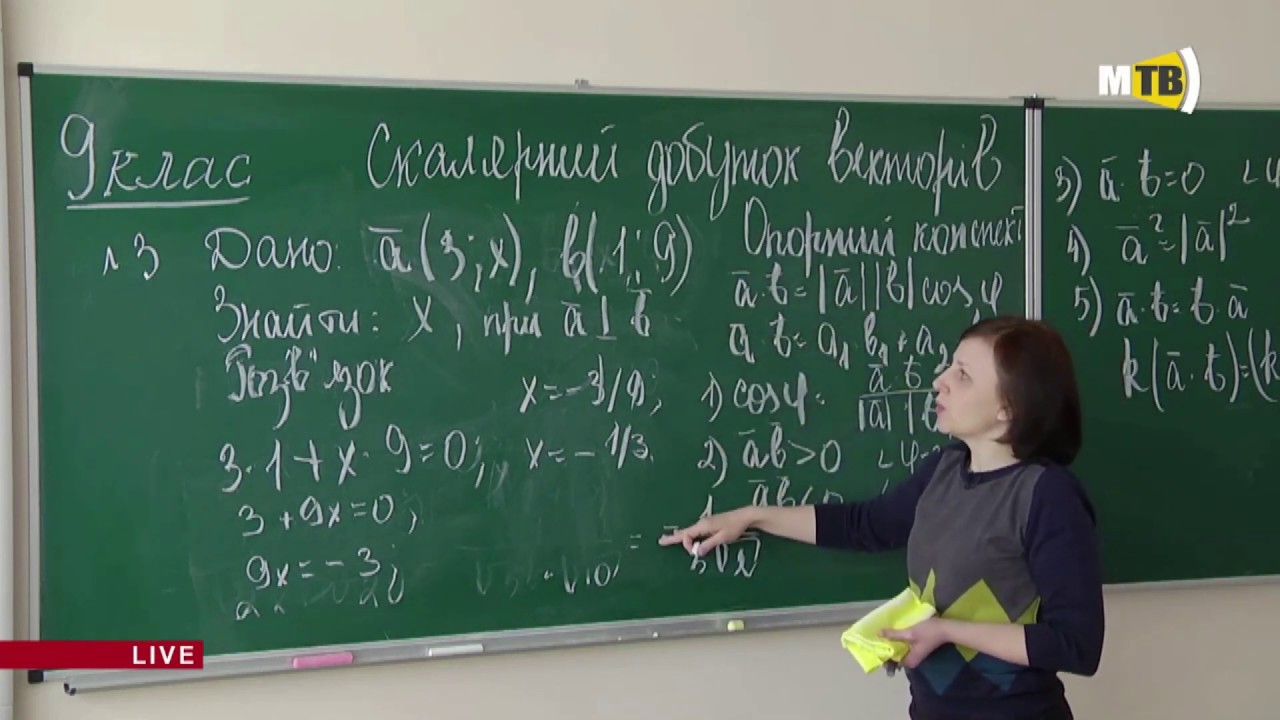 МТВ
9 клас
Скалярний добуток векторів
№3 Дано: a̅(3;x), b(1;9)
Знайти: x, при a̅⊥b̅
Розв'язок
3·1+x·9=0;
3+9x=0;
9x=-3;
x=-3/9;
x=-1/3.
Опорний конспект
a̅·b=|a̅||b|cosφ
a·b=a₁b₁+a₂
1) cosφ=a̅·b/|a̅||b
2) a̅b̅>0 ∠φ-
a̅b̅<0
3) a̅·b=0 ∠φ
4) a̅²=|a̅|²
5) a̅·b=b·a̅
k(a̅·b)=(k
LIVE